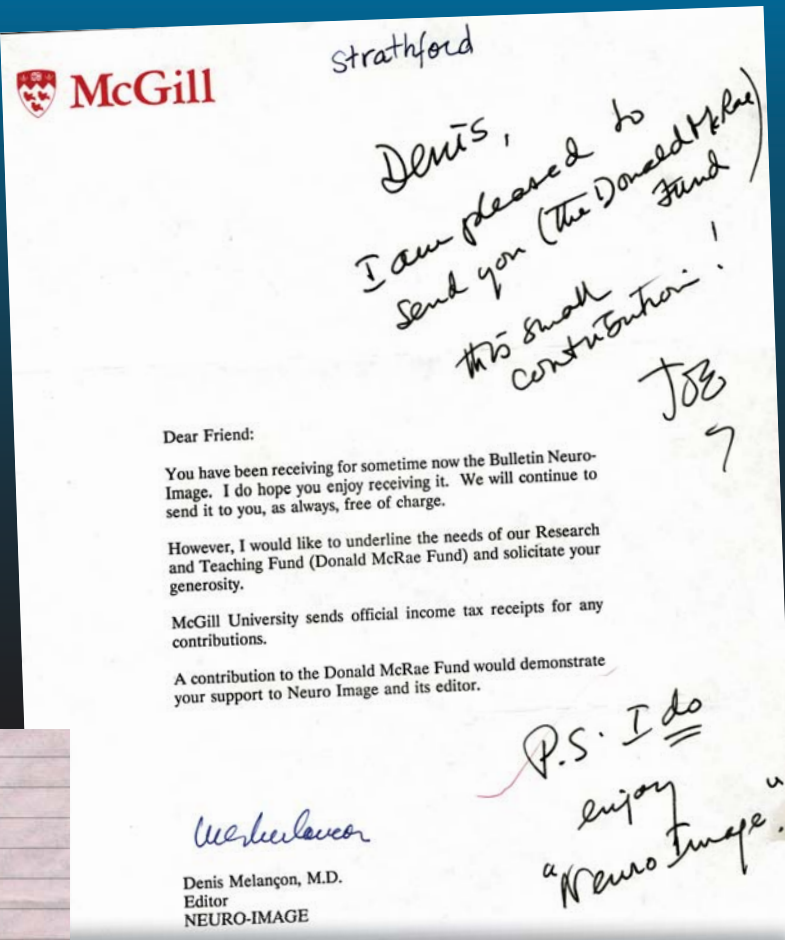 strathford
McGill
Denis,
I am pleased to
send you (the Donald McRae
Fund)
this small
contribution!
JOE
Dear Friend:
You have been receiving for sometime now the Bulletin Neuro-
Image. I do hope you enjoy receiving it. We will continue to
send it to you, as always, free of charge.
However, I would like to underline the needs of our Research
and Teaching Fund (Donald McRae Fund) and solicitate your
generosity.
McGill University sends official income tax receipts for any
contributions.
A contribution to the Donald McRae Fund would demonstrate
your support to Neuro Image and its editor.
P.S. I do
enjoy
"Neuro Image".
Denis Melançon, M.D.
Editor
NEURO-IMAGE